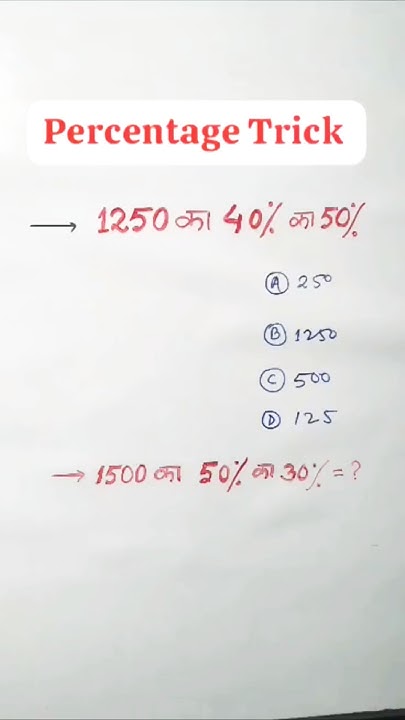 Percentage Trick
→ 1250 का 40% का 50%
Ⓐ 250
Ⓑ 1250
Ⓒ 500
Ⓓ 125
→ 1500 का 50% का 30% = ?